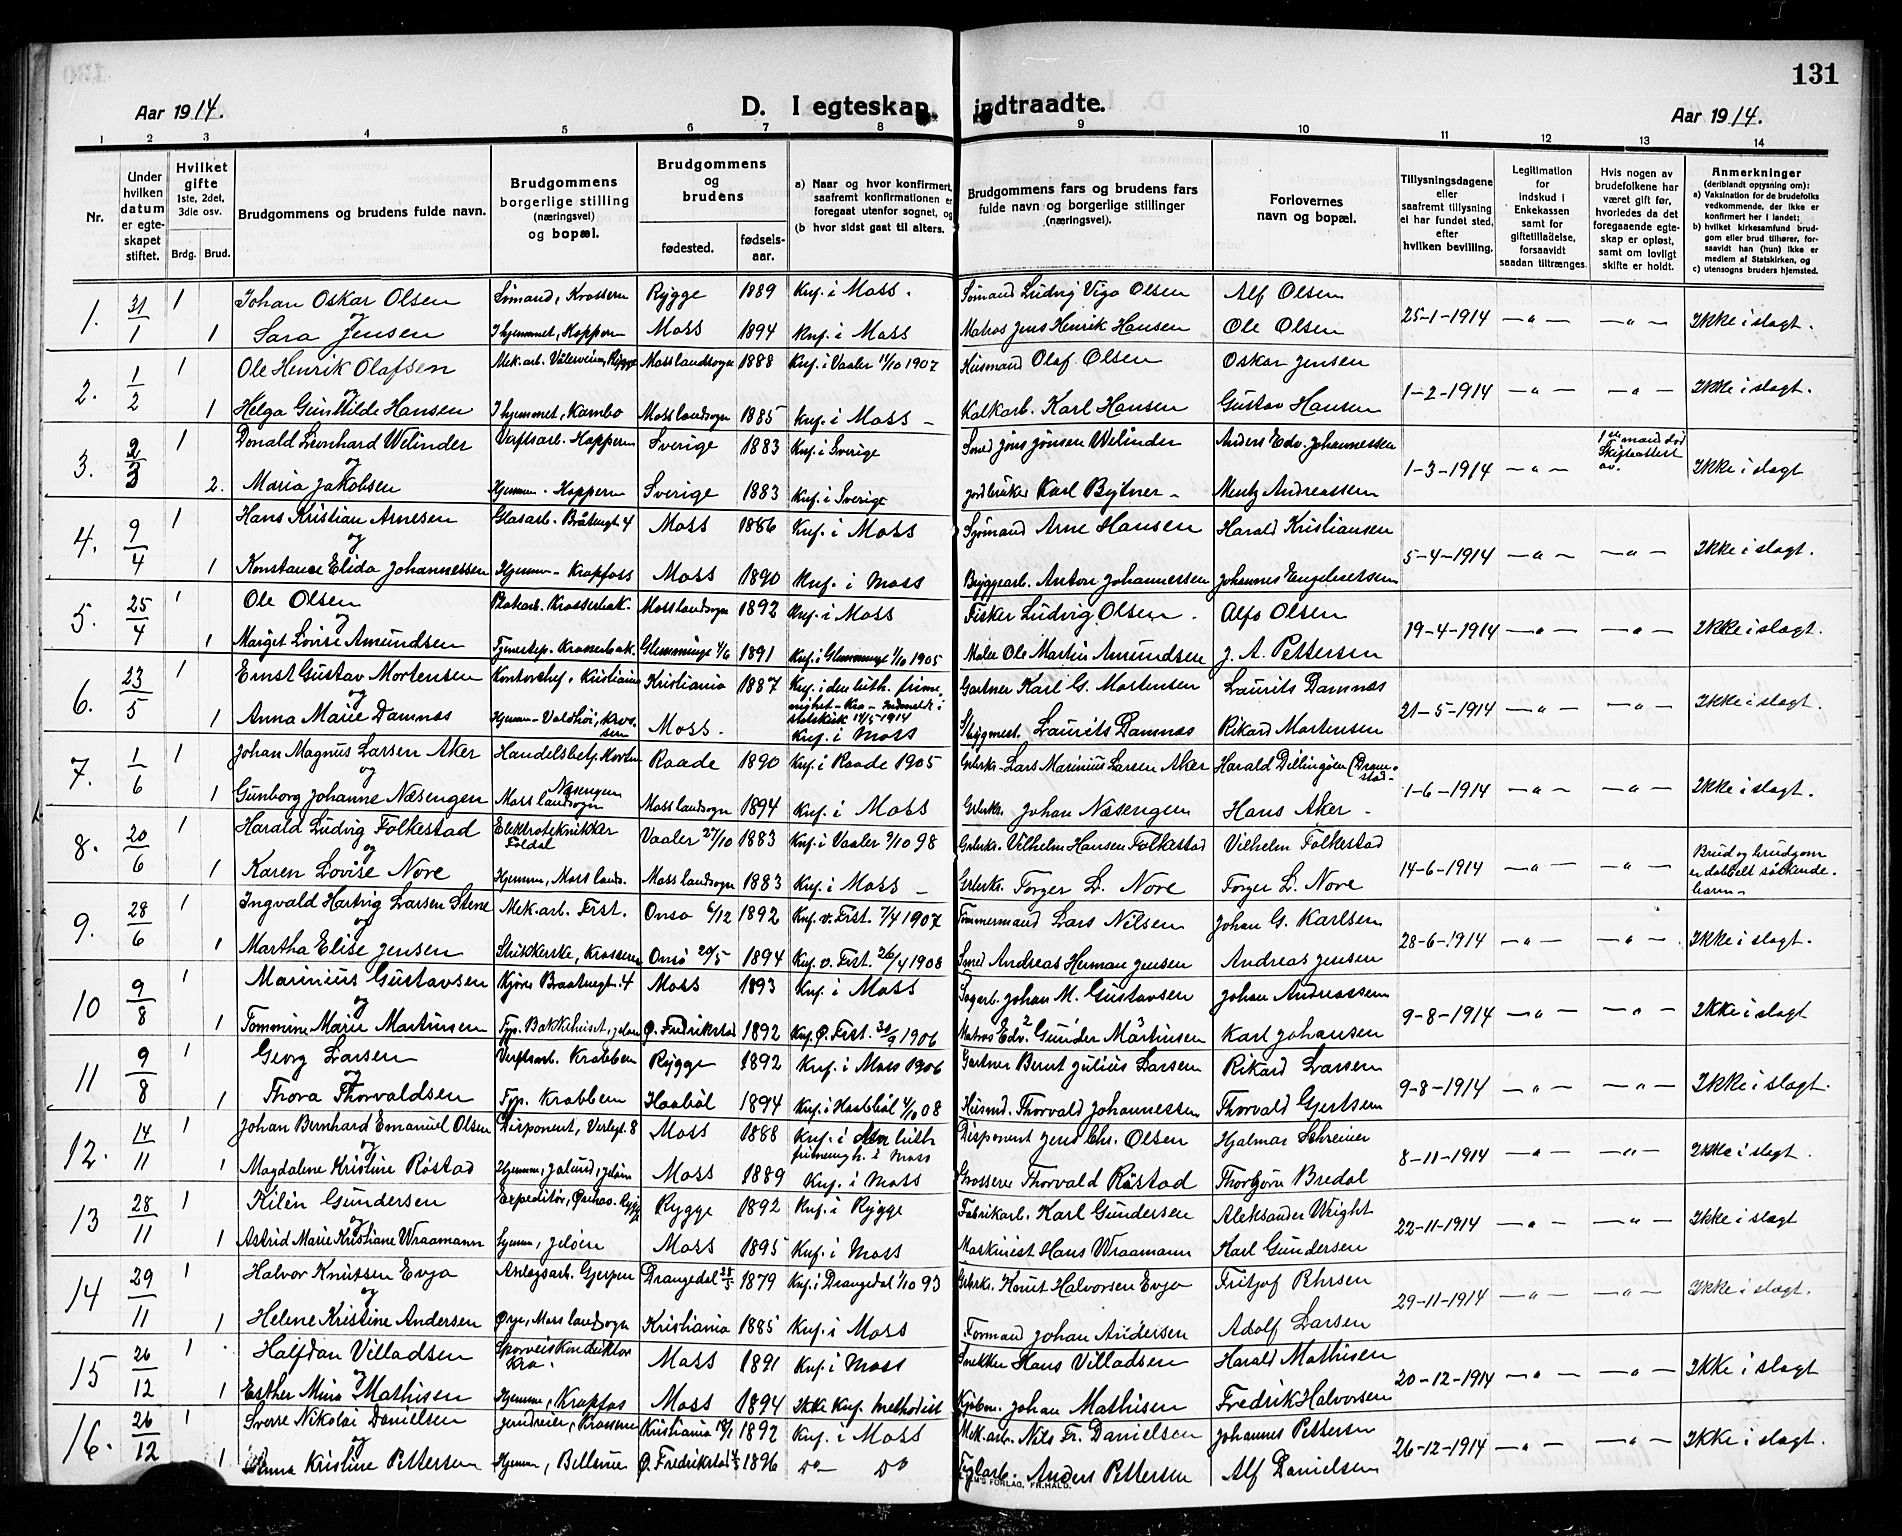 131
Aar 1914.
D. I egteskap indtraadte.
Aar 1914.
1 2 3 4 5 6 7 8 9 10 11 12 13 14
Nr.
Under hvilken datum er egteskapet stiftet.
Hvilket gifte 1ste, 2det, 3die osv.
Brdg. Brud.
Brudgommens og brudens fulde navn.
Brudgommens borgerlige stilling (næringsvei) og bopæl.
Brudgommens og brudens
fødested. fødselsaar.
a) Naar og hvor konfirmert, saafremt konfirmationen er foregaat utenfor sognet, og
(b hvor sidst gaat til alters.
Brudgommens fars og brudens fars fulde navn og borgerlige stillinger (næringsvei).
Forlovernes navn og bopæl.
Tillysningsdagene eller saafremt tillysning ei har fundet sted, efter hvilken bevilling.
Legitimation for indskud i Enkekassen samt for giftetilladelse, forsaavidt saadan tiltrænges
Hvis nogen av brudefolkene har været gift før, hvorledes da det foregaaende egteskap er opløst, samt om lovligt skifte er holdt.
Anmerkninger (deriblandt opjysning om):
a) Vaksination for de brudefolks vedkommende, der ikke er konfirmert her i landet;
b) hvilket kirkesamfund brudgom eller brud tilhører, forsaavidt han (hun) ikke er medlem af Statskirken, og
c) utensogns bruders hjemsted.
1. 31/1 1 Johan Oskar Olsen Sømand, Krossern Rygge 1889 Knf. i Moss. Sømand Ludvig Vigo Olsen Alf Olsen 25-1-1914 -"- -"- Ikke i slagt.
1 Sara Jensen I hjemmet, Koppern Moss 1894 Knf. i Moss Matros Jens Henrik Hansen Ole Olsen
2. 1/2 1 Ole Henrik Olafsen Mek.arb. Vålerveien, Rygge Moss landsogn 1888 Knf. i Vaaler 11/10 1907 Husmand Olaf Olsen Oskar Jensen 1-2-1914 -"- -"- Ikke i slagt.
1 Helga Gunhilde Hansen I hjemmet, Kambo Moss landsogn 1885 Knf. i Moss - Kalkarb. Karl Hansen Gustav Hansen
3. 2/3 1 Donald Leonhard Welinder Verftsarb. Koppern Sverige 1883 Knf. i Sverige Smed Jöns Jönsen Welinder Anders Edv. Johannessen 1-3-1914 -"- 1ste mand død Skifteattest av. Ikke i slagt
og
2. Maria Jakobsen Hjemm. Koppern Sverige 1883 Knf. i Sverige Jordbruker Karl Bytner - Mentz Andreassen
4. 9/4 1 Hans Kristian Arnesen Glasarb. Bråtengt 4 Moss 1886 Knf. i Moss Sjømand Arne Hansen Harald Kristiansen 5-4-1914 -"- -"- Ikke i slagt.
og
1 Konstance Elida Johannessen Hjemm - Krapfoss Moss 1890 Knf. i Moss Bryggearb. Anton Johannessen Johannes Engebretsen
5. 25/4 1 Ole Olsen Platearb. Krosserbak. Moss landsogn 1892 Knf. i Moss Fisker Ludvig Olsen. Alfo Olsen 19-4-1914 -"- -"- Ikke i slagt.
og
1 Marget Lovise Amundsen Tjenestep. Krosserbak. Glemminge 1/6 1891 Knf. i Glemminge 1/10 1905 Maler Ole Martin Amundsen J. A. Pettersen
6. 23/5 1 Ernst Gustav Mortensen Kontorchef, Kristiania Kristiania 1887 Knf. i den luth. frimenighet - Kra - Indmeldt i statskirk 14/5 1914 Gartner Karl G. Mortensen Laurits Damnæs 21-5-1914 -"- -"- Ikke i slagt.
og
1 Anna Marie Damnæs Hjemm - Valdhöi, Krossern Moss. Knf. i Moss Laurits Damnæs Rikard Mortensen
7. 1/6 1 Johan Magnus Larsen Aker Handelsbetj. Raade 1890 Knf. i Raade 1905 Grbrkr. Lars Marinius Larsen Aker Harald Dillingöen 1-6-1914 -"- -"- Ikke i slagt.
og
1 Gunborg Johanne Næsengen Næsengen Moss landsogn Moss landsogn 1894 Knf. i Moss Grbrkr. Johan Næsengen Hans Aker -
8. 20/6 1 Harald Ludvig Folkestad Elektrotekniker Foldal Vaaler 27/10 1883 Knf. i Vaaler 9/10 98 Grbrkr. Vilhelm Hansen Folkestad Vilhelm Folkestad 14-6-1914 -"- -"- Brud og brudgom er dobbelt søskendebarn -
og
1 Karen Lovise Nore Hjemm, Moss lands. Moss landsogn 1883 Knf. i Moss - Grbrkr. Torger L. Nore Torger L. Nore
9. 28/6 1 Ingvald Hartvig Larsen Stene Mek. arb. Frst. Onsø 6/12 1892 Knf. v. Frst. 7/4 1907 Tømmermand Lars Nilsen Johan G. Karlsen 28-6-1914 -"- -"- Ikke i slagt.
og
1 Martha Elise Jensen Strikkerske, Krossern Onsö 20/5 1894 Knf. v. Frst. 26/4 1908 Smed Andreas Herman Jensen Andreas Jensen
10 9/8 1 Marinius Gustavsen Kjører Braatengt. 4 Moss 1893 Knf. i Moss Sagarb. Johan M. Gustavsen Johan Andreassen 9-8-1914 -"- -"- Ikke i slagt
og
1 Tommine Marie Martinsen Tjp. Bakkehuset, Jeløen Ø. Fredrikstad 1892 Knf. Ø. Frst. 30/9 1906 Matros Edv. Gunder Martinsen Karl Johansen
11 9/8 1 Georg Larsen Verftsarb. Krabben Rygge 1892 Knf. i Moss 1906 Gartner Bernt Julius Larsen Rikard Larsen 9-8-1914 -"- -"- Ikke i slagt.
og
1 Thora Thorvaldsen Tjp. Krabben Haabøl 1894 Knf. i Haabøl 4/10 08 Husmd. Thorvald Johannessen Thorvald Gjertsen
12. 14/11 1 Johan Bernhard Emanuel Olsen Disponent, Verlegt. 8 Moss 1888 Knf. i den luth frimengh. i Moss Disponent Jens Chr. Olsen Hjalmar Schreiner 8-11-1914 -"- -"- Ikke i slagt.
og
1 Magdalene Kristine Røstad Hjemm, Jeløen Moss 1889 Knf. i Moss Grosserer Thorvald Røstad Thorbjørn Bredal
13 28/11 1 Kilén Gundersen Expeditør, Rygge Rygge 1892 Knf. i Rygge Fabrikarb. Karl Gundersen Aleksander Wright 22-11-1914 -"- -"- Ikke i slagt
og
1 Astrid Marie Kristiane Wraamann Hjemm, Jeløen Moss 1895 Knf. i Moss Maskinist Hans Wraamann Karl Gundersen
14 29/11 1 Halvor Knutsen Evja Anlægsarb. Gjerpen Drangedal 28/5 1879 Knf. i Drangedal 1/10 93 Grbrkr. Knut Halvorsen Evja Fritjof Ihrsen 29-11-1914 -"- -"- Ikke i slagt.
og
1 Helene Kristine Andersen Ørje, Moss landsogn Kristiania 1885 Knf. i Moss Formand Johan Andersen Adolf Larsen
15 26/12 1 Halfdan Villadsen Sporveiskonduktør Kra - Moss 1891 Knf. i Moss Snekker Hans Villadsen Harald Mathisen 20-12-1914 -"- -"- Ikke i slagt
og
1 Esther Mina Mathisen Hjemm, Krapfos Moss 1894 Ikke Knf. Methodist Kjøbm. Johan Mathisen Fredrik Halvorsen
16. 26/12 1 Sverre Nikolai Danielsen Jerndreier, Krossern Kristiania 18/1 1892 Knf. i Moss Mek. arb. Nils Fr. Danielsen Johannes Pettersen 26-12-1914 -"- -"- Ikke i slagt.
og
1 Anna Kristine Pettersen Hjemm, Bellevue Ø. Fredrikstad 1896 Do - Do Teglarb. Anders Pettersen Alf Danielsen
FORLAG, FR.HALD.